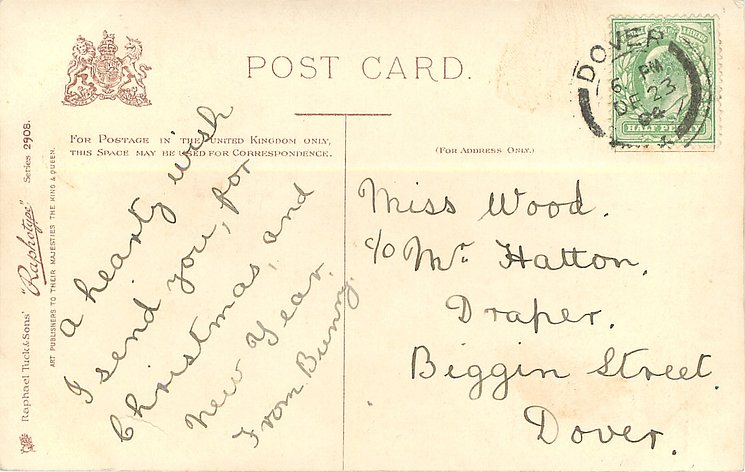 POST CARD.
FOR POSTAGE IN THE UNITED KINGDOM ONLY,
THIS SPACE MAY BE USED FOR CORRESPONDENCE.
(FOR ADDRESS ONLY.)
DOVER
6 PM
DE 23
04
HALF PENNY
A hearty wish
I send you, for
Christmas, and
New Year.
From Bunny.
Miss Wood.
c/o Mr. Hatton,
Draper,
Biggin Street,
Dover.
Raphael Tuck & Sons' "Raphotype" Series 2908.
ART PUBLISHERS TO THEIR MAJESTIES THE KING & QUEEN.